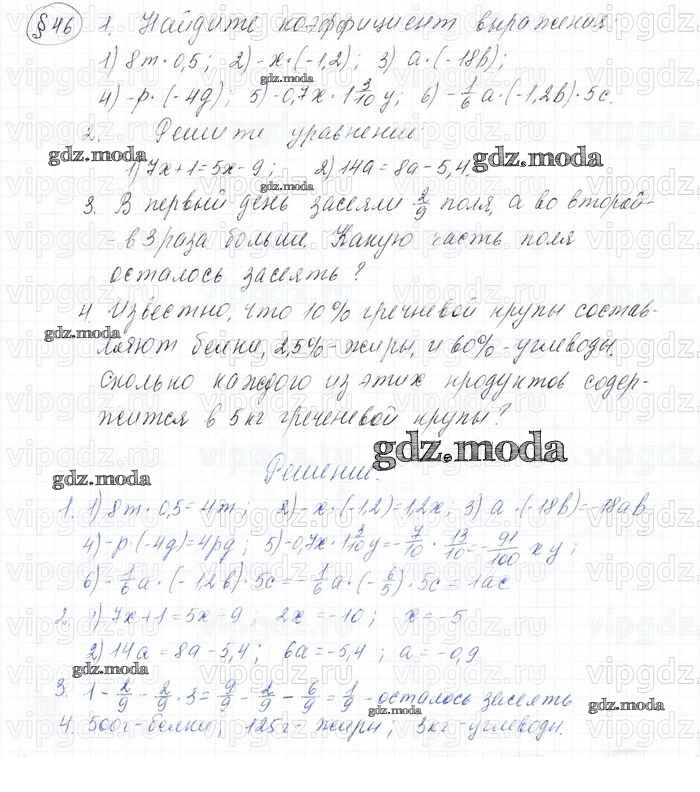 §46 1. Найдите коэффициент выражения
1) 8m·0,5; 2) -x·(-1,2); 3) a·(-18b);
4) -p·(-4q); 5) -0,7x·1 3/10 y; 6) -1/6 a·(-1,2b)·5c.
2. Решите уравнения:
1) 7x+1=5x-9; 2) 14a=8a-5,4.
3. В первый день засеяли 2/9 поля, а во второй-
- в 3 раза больше. Какую часть поля
осталось засеять?
4. Известно, что 10% гречневой крупы состав-
ляют белки, 2,5%-жиры, и 60%-углеводы.
Сколько каждого из этих продуктов содер-
жится в 5 кг гречневой крупы?
Решение.
1. 1) 8m·0,5=4m; 2) -x·(-1,2)=1,2x; 3) a·(-18b)=-18ab
4) -p·(-4q)=4pq; 5) -0,7x·1 3/10 y=-7/10·13/10=-91/100 xy;
6) -1/6 a·(-1,2b)·5c=-1/6 a·(-6/5)·5c=1ac
2. 1) 7x+1=5x-9; 2x=-10; x=-5
2) 14a=8a-5,4; 6a=-5,4; a=-0,9
3. 1-2/9-2/9·3=9/9-2/9-6/9=1/9 - осталось засеять
4. 500г-белки; 125г-жиры; 3кг-углеводы.
gdz.moda
gdz.moda
gdz.moda
gdz.moda
gdz.moda
gdz.moda
gdz.moda
gdz.moda
gdz.moda
gdz.moda
gdz.moda